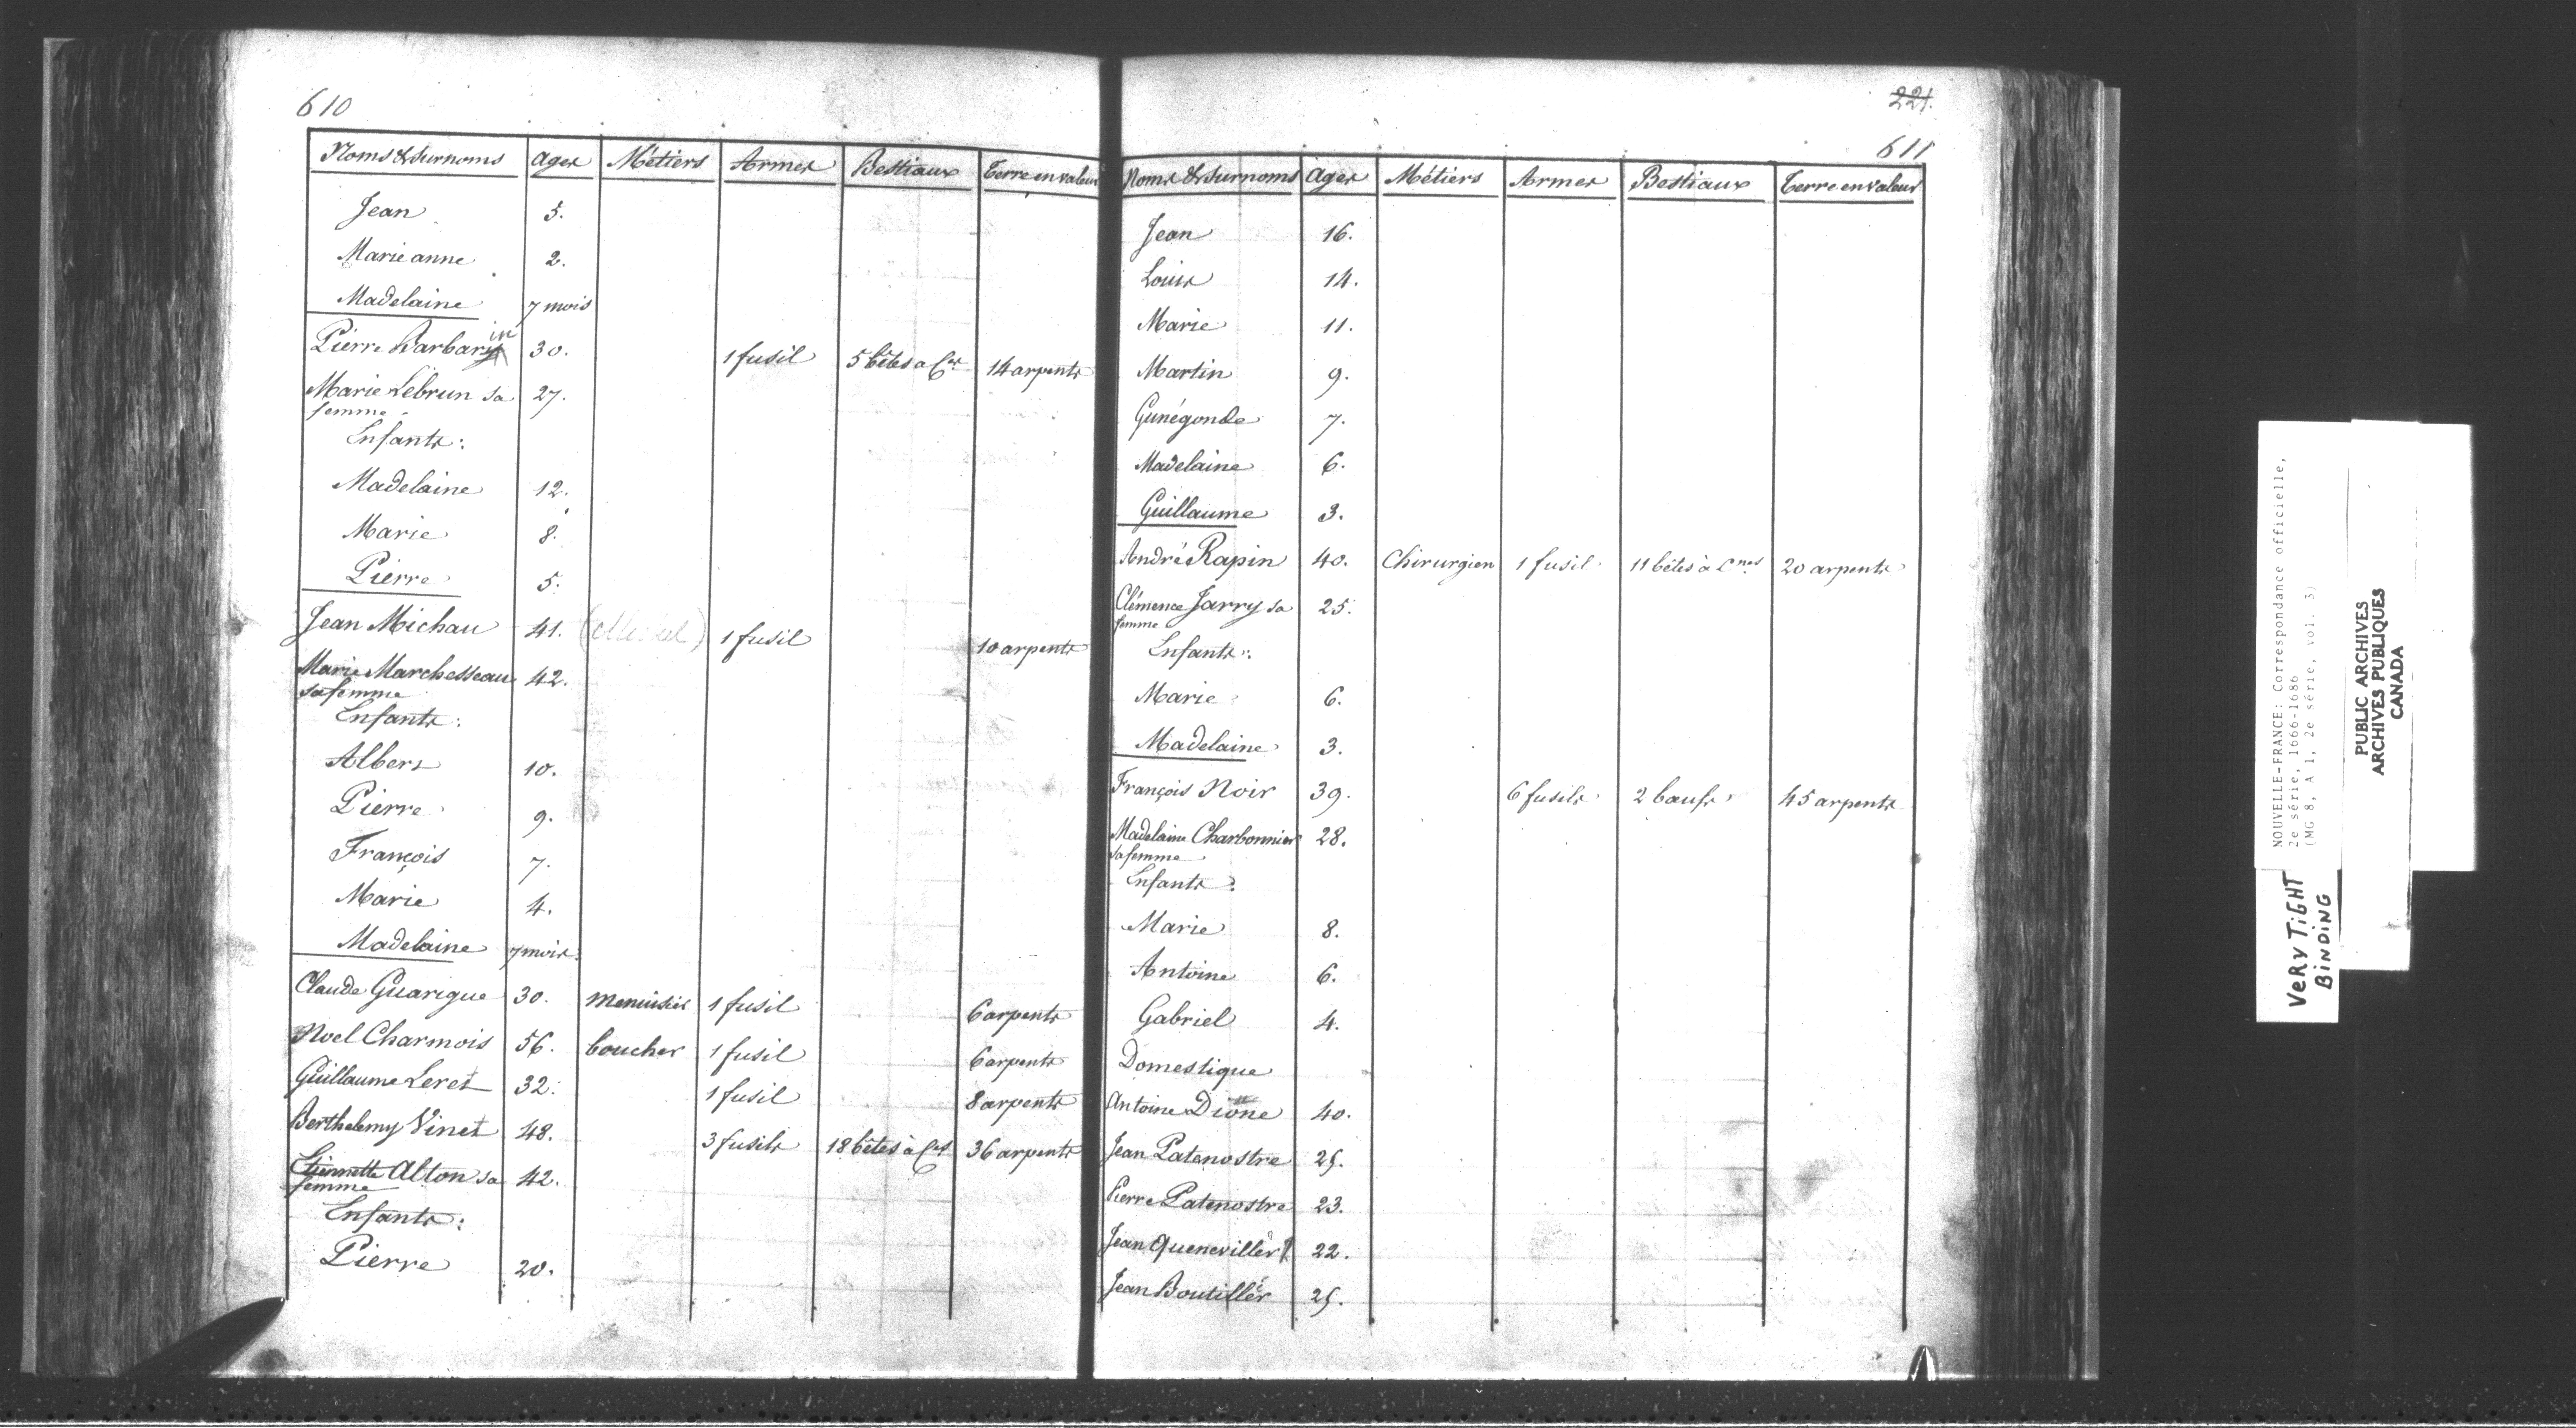 610
Noms & Surnoms Ages Métiers Armes Bestiaux Terre en valeur
Jean 5.
Marie anne 2.
Madelaine 7 mois
Pierre Barbarin 30. 1 fusil 5 bêtes à Ces 14 arpents
Marie Lebrun sa 27.
femme
Enfants:
Madelaine 12.
Marie 8.
Pierre 5.
Jean Michau 41. 1 fusil 10 arpents
Marie Marchesseau 42.
sa femme
Enfants:
Albert 10.
Pierre 9.
François 7.
Marie 4.
Madelaine 7 mois.
Claude Guarigue 30. menuisier 1 fusil 6 arpents
Noel Charmois 56. boucher 1 fusil 6 arpents
Guillaume Leret 32. 1 fusil 8 arpents
Berthelemy Vinet 48. 3 fusils 18 bêtes à Ces 36 arpents
Etiennette Alton sa 42.
femme
Enfants:
Pierre 20.
221.
611
Noms & Surnoms Ages Métiers Armes Bestiaux Terre en valeur
Jean 16.
Louis 14.
Marie 11.
Martin 9.
Cunégonde 7.
Madelaine 6.
Guillaume 3.
André Rapin 40. Chirurgien 1 fusil 11 bêtes à Cnes 20 arpents
Clémence Jarry sa 25.
femme
Enfants:
Marie 6.
Madelaine 3.
François Noir 39. 6 fusils 2 bœufs 45 arpents
Madelaine Charbonnier 28.
sa femme
Enfants:
Marie 8.
Antoine 6.
Gabriel 4.
Domestique
Antoine Dione 40.
Jean Patenostre 25.
Pierre Patenostre 23.
Jean Quenevillér 22.
Jean Boutillér 25.
NOUVELLE-FRANCE: Correspondance officielle,
2e série, 1666-1686
(MG 8, A 1, 2e série, vol. 3)
PUBLIC ARCHIVES
ARCHIVES PUBLIQUES
CANADA
VERY TIGHT
BINDING